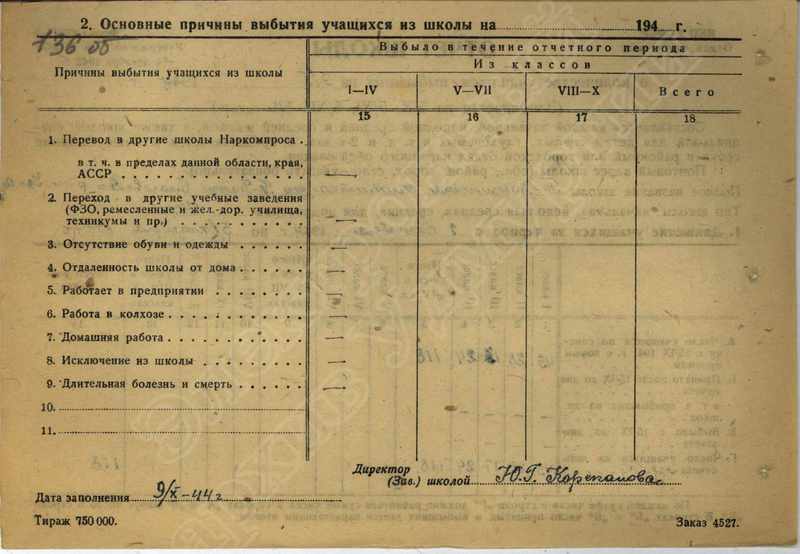 2. Основные причины выбытия учащихся из школы на 194 г.
136 об
Причины выбытия учащихся из школы
Выбыло в течение отчетного периода
Из классов
I—IV V—VII VIII—X Всего
15 16 17 18
1. Перевод в другие школы Наркомпроса .
в т. ч. в пределах данной области, края,
АССР . . . . . . . . . . . . . . . . —
2. Переход в другие учебные заведения
(ФЗО, ремесленные и жел.-дор. училища,
техникумы и пр.) . . . . . . . . . . . —
3. Отсутствие обуви и одежды . . . . . . —
4. Отдаленность школы от дома . . . . . . —
5. Работает в предприятии . . . . . . . . —
6. Работа в колхозе . . . . . . . . . . . . —
7. Домашняя работа . . . . . . . . . . . . —
8. Исключение из школы . . . . . . . . . —
9. Длительная болезнь и смерть . . . . . . —
10.
11.
Директор
(Зав.) школой Ю.Г. Корепанова
Дата заполнения 9/X-44 г
Тираж 750 000.
Заказ 4527.